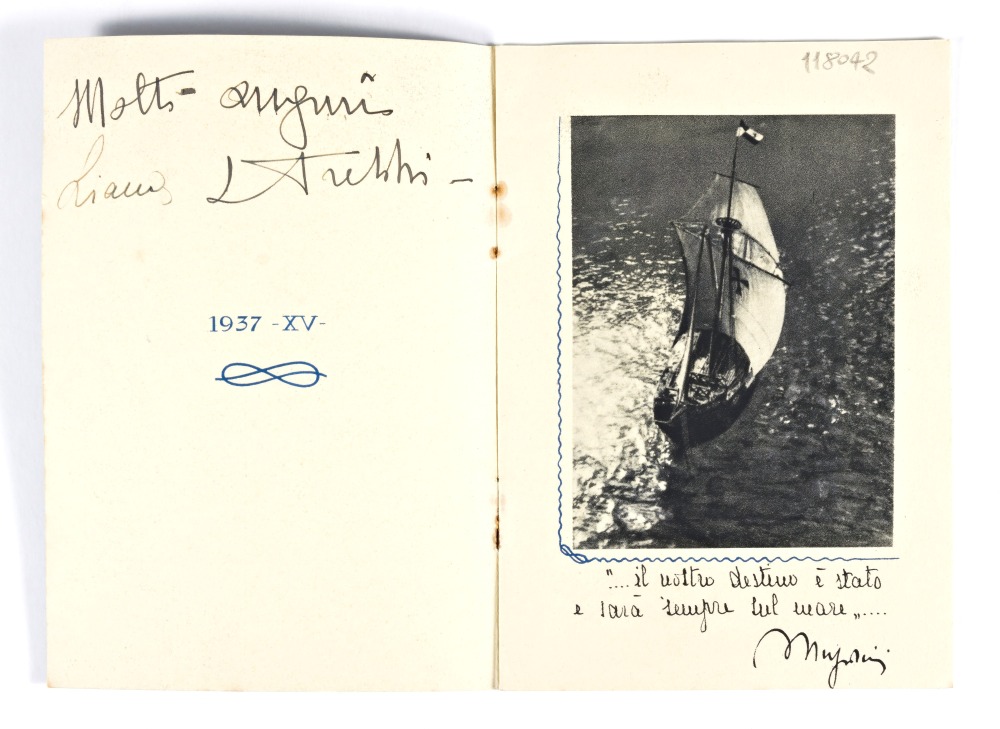 Molti auguri
Liana
1937 -XV-
118042
"....il nostro destino è stato
e sarà sempre sul mare„....
Mussolini